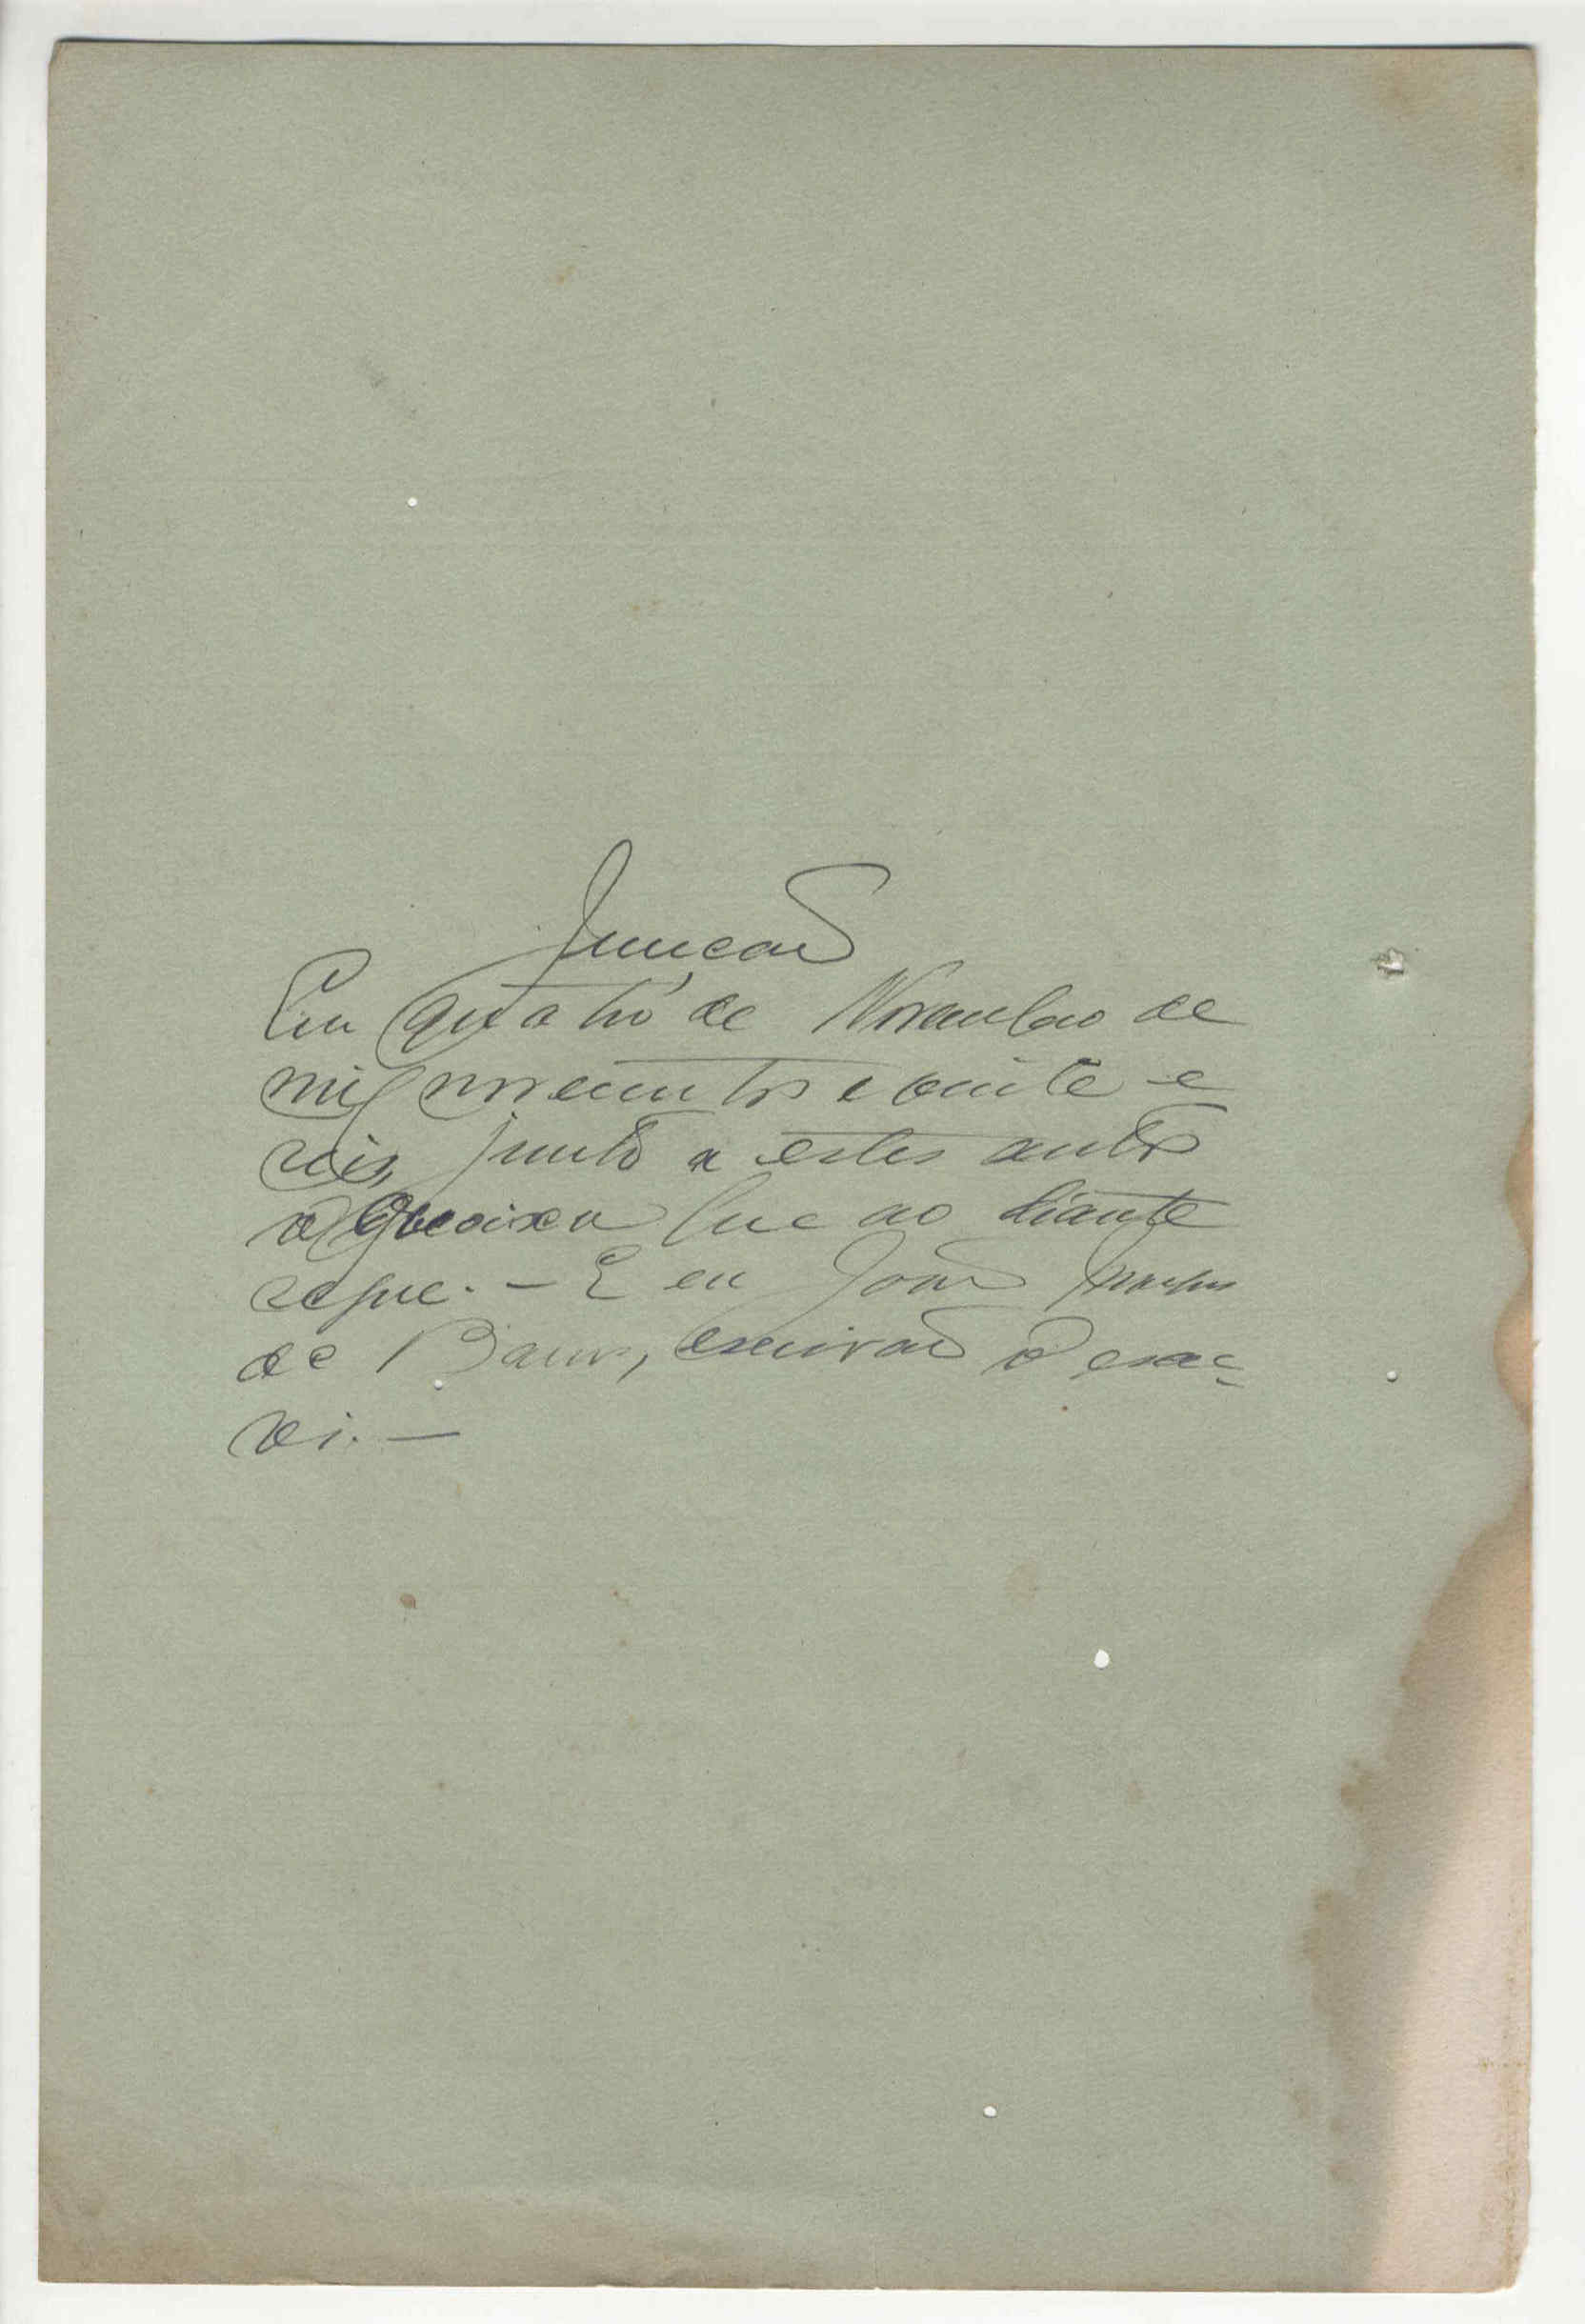 Juncção
Em quatro de Novembro de
mil novecentos e vinte e
seis, junto a estes autos
a queixa que ao diante
segue. — E eu João
de Barros, escrivão o escre-
vi. —